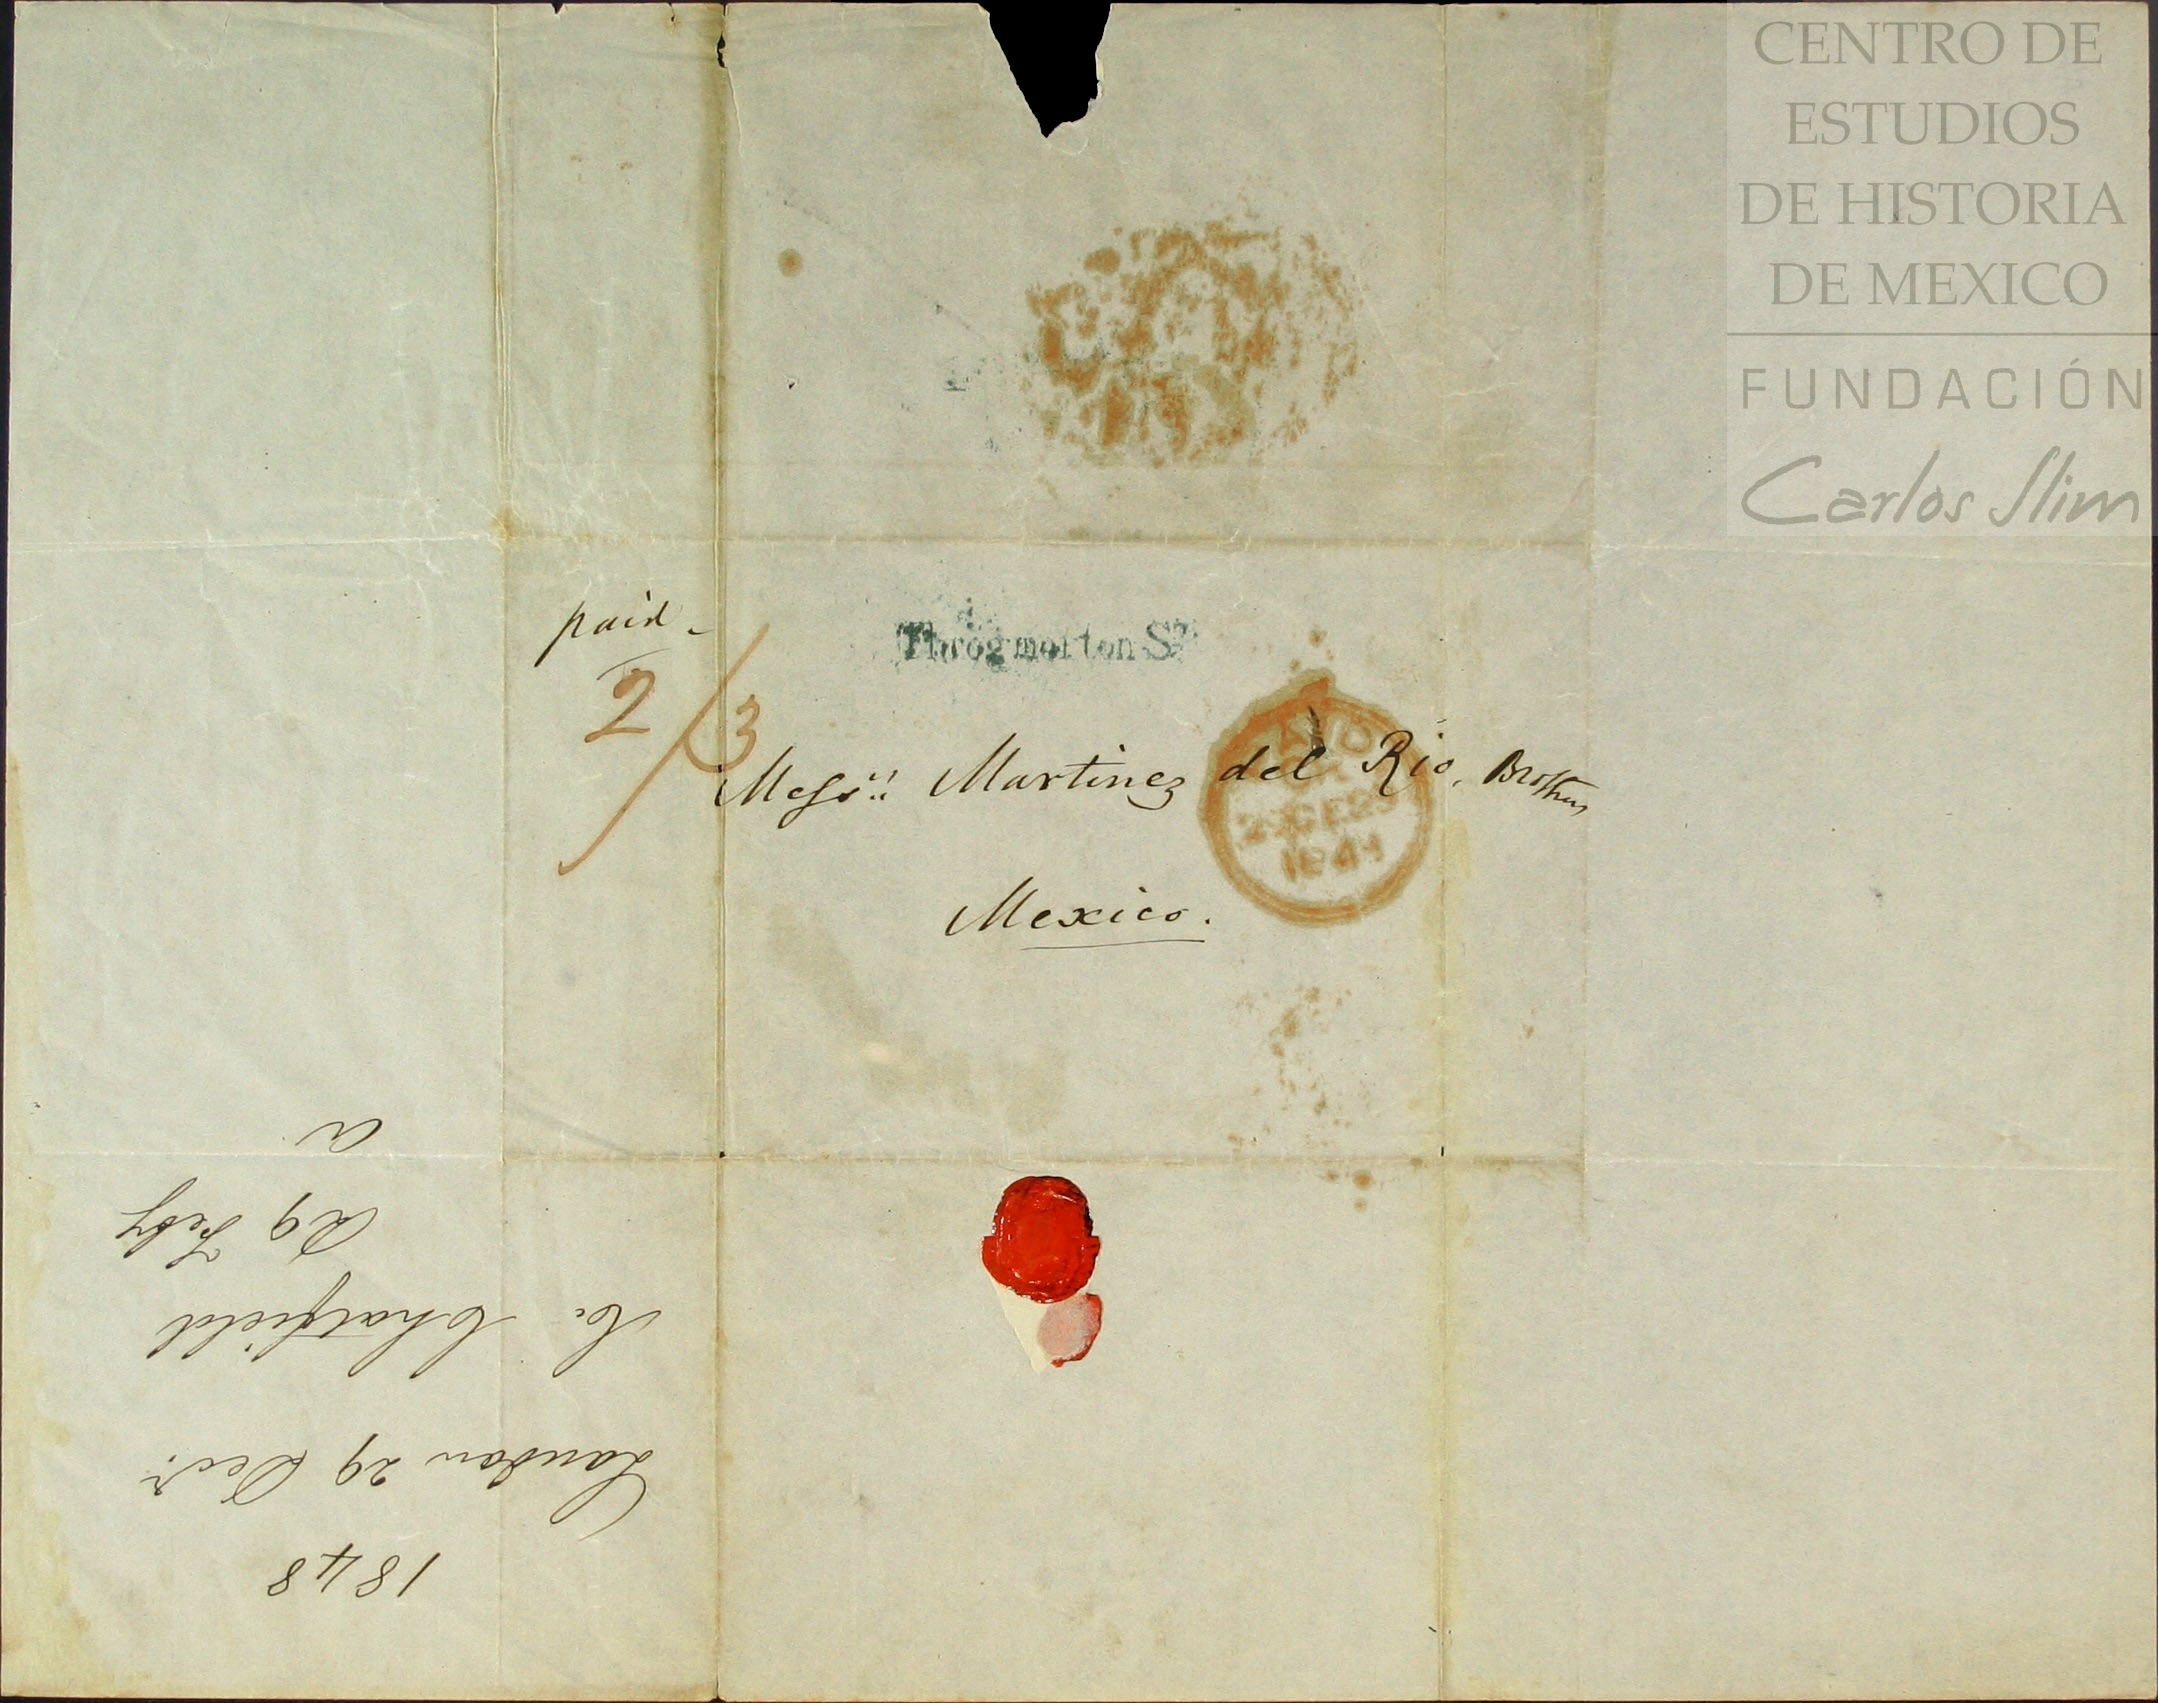 CENTRO DE
ESTUDIOS
DE HISTORIA
DE MEXICO
FUNDACIÓN
Carlos Slim
paid
2/3
Throgmorton St
Messrs Martinez del Rio, Brothers
Mexico.
1848
London 29 Decr.
C. Chatfield
Rg Feby
a